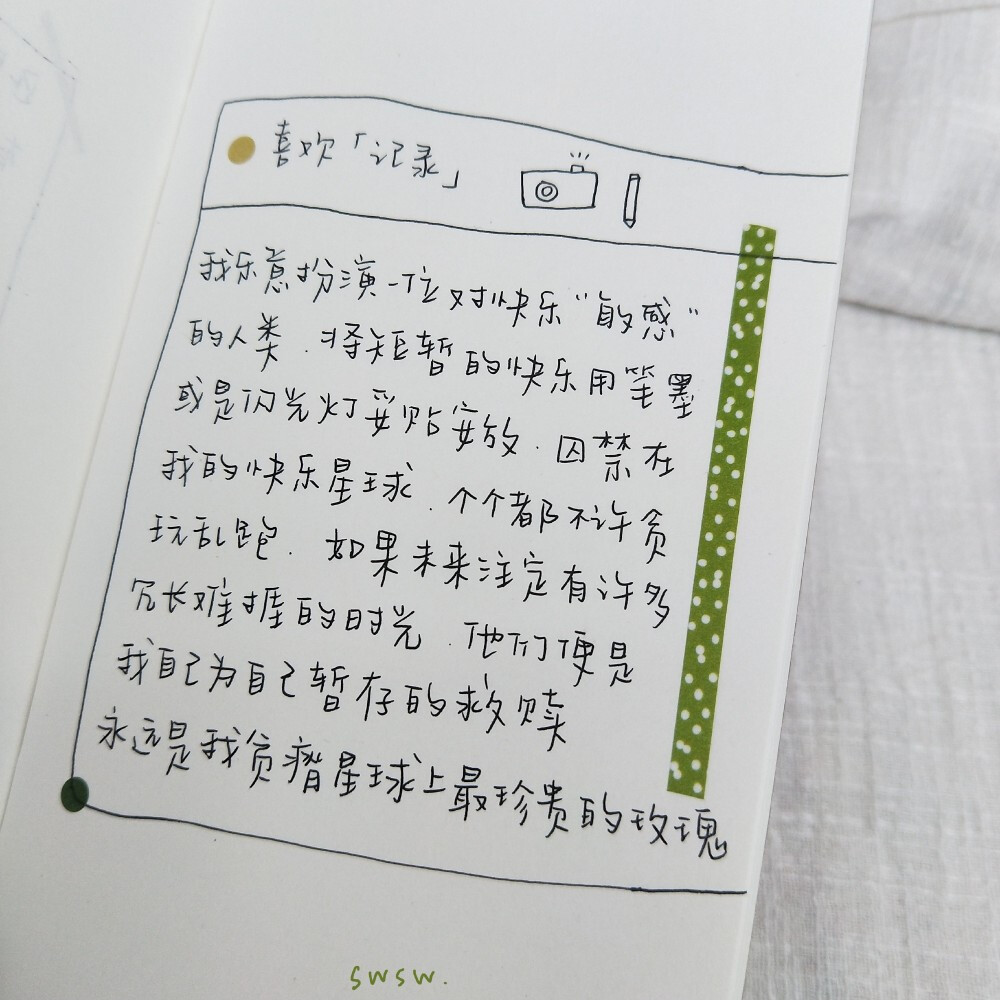 喜欢「记录」
我乐意扮演一位对快乐“敏感”
的人类.将短暂的快乐用笔墨
或是闪光灯妥贴安放.囚禁在
我的快乐星球.个个都不许贪
玩乱跑.如果未来注定有许多
冗长难捱的时光.他们便是
我自己为自己暂存的救赎
永远是我贫瘠星球上最珍贵的玫瑰
swsw.